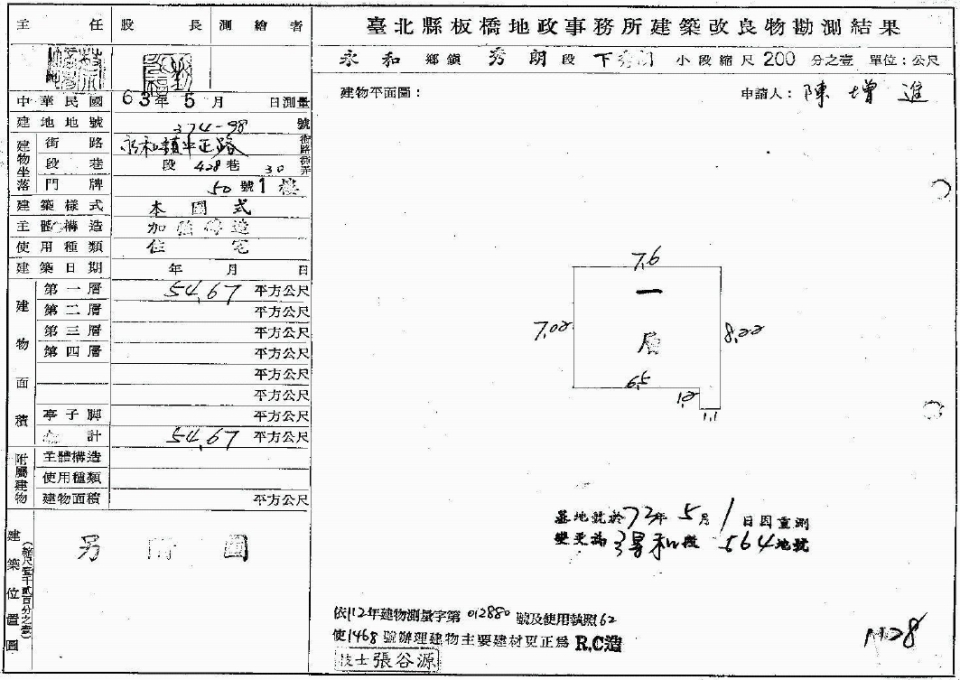 主任 股長 測繪者
中華民國 63年 5月 日測量
建地地號 374-98 號
建物坐落 街路 永和鎮中正路 街路
段巷 段 428巷 30弄
門牌 50號1樓
建築樣式 本國式
主體構造 加強磚造
使用種類 住宅
建築日期 年 月 日
建物面積
第一層 54.67 平方公尺
第二層 平方公尺
第三層 平方公尺
第四層 平方公尺
平方公尺
平方公尺
亭子脚 平方公尺
計 54.67 平方公尺
附屬建物 主體構造
使用種類
建物面積 平方公尺
建築位置圖
(縮尺壹千貳百分之壹)
另附圖
臺北縣板橋地政事務所建築改良物勘測結果
永和 鄉鎮 秀朗 段 下秀朗 小段縮尺 200 分之壹 單位:公尺
建物平面圖:
申請人:陳增進
7.6
一
層
7.02
8.22
6.5
1.2
1.1
基地號於72年5月1日因重測
變更為 段 564地號
依112年建物測量字第012880號及使用執照62
使1468號辦理建物主要建材更正為R.C造
技士張谷源